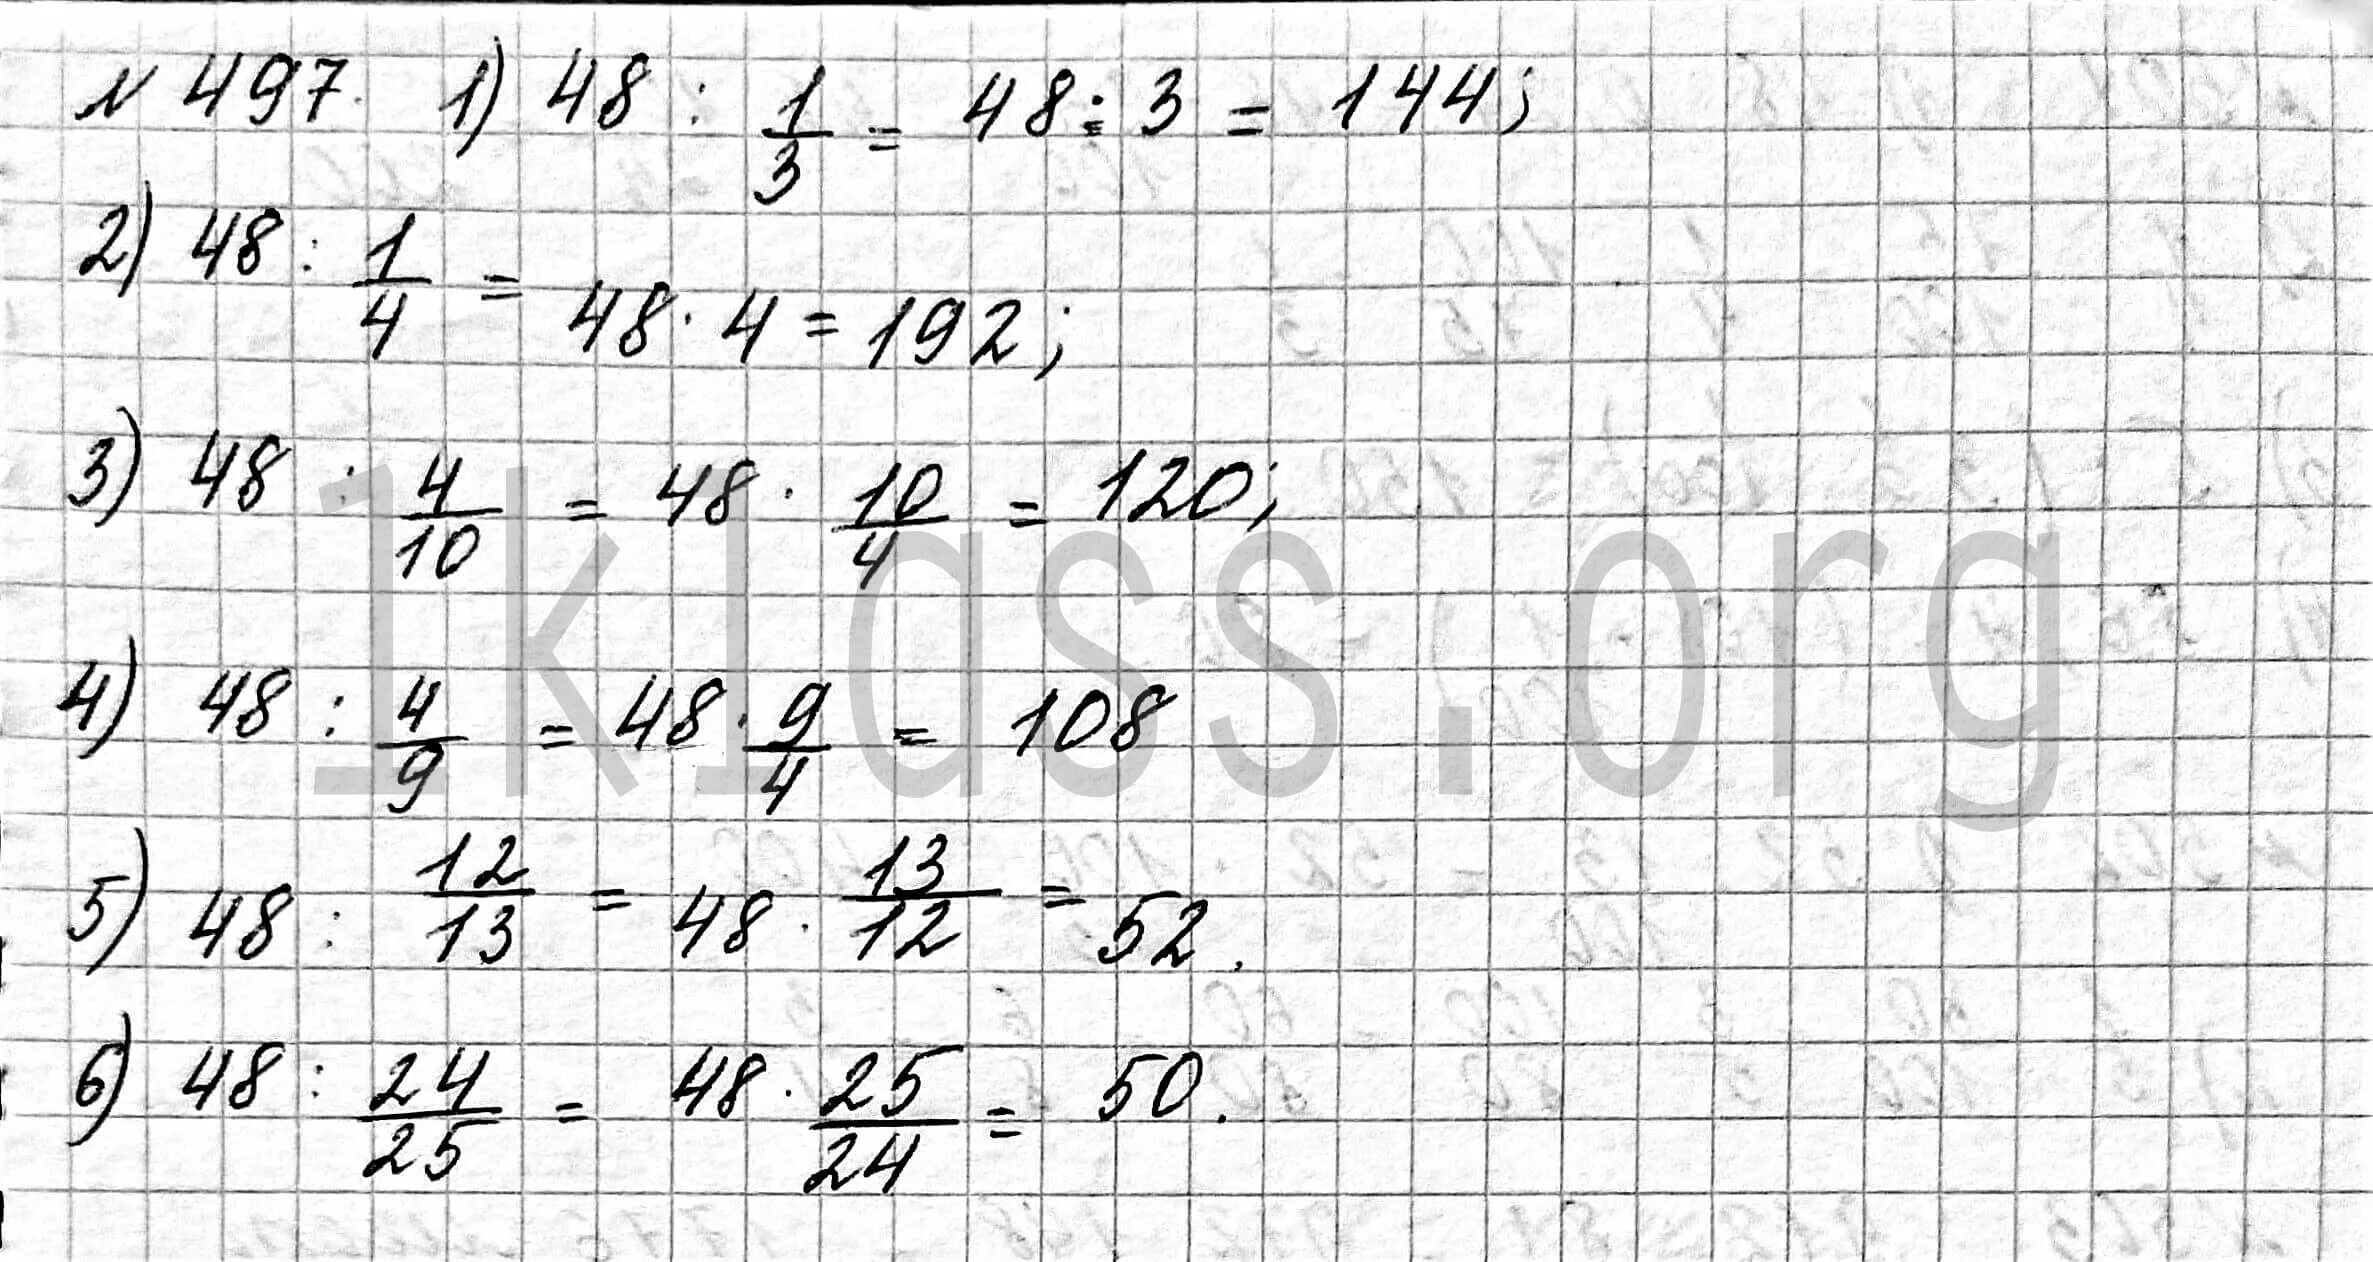 № 497. 1) 48 : 1/3 = 48 : 3 = 144;
2) 48 : 1/4 = 48 · 4 = 192;
3) 48 : 4/10 = 48 · 10/4 = 120;
4) 48 : 4/9 = 48 · 9/4 = 108
5) 48 : 12/13 = 48 · 13/12 = 52.
6) 48 : 24/25 = 48 · 25/24 = 50.
1klass.org